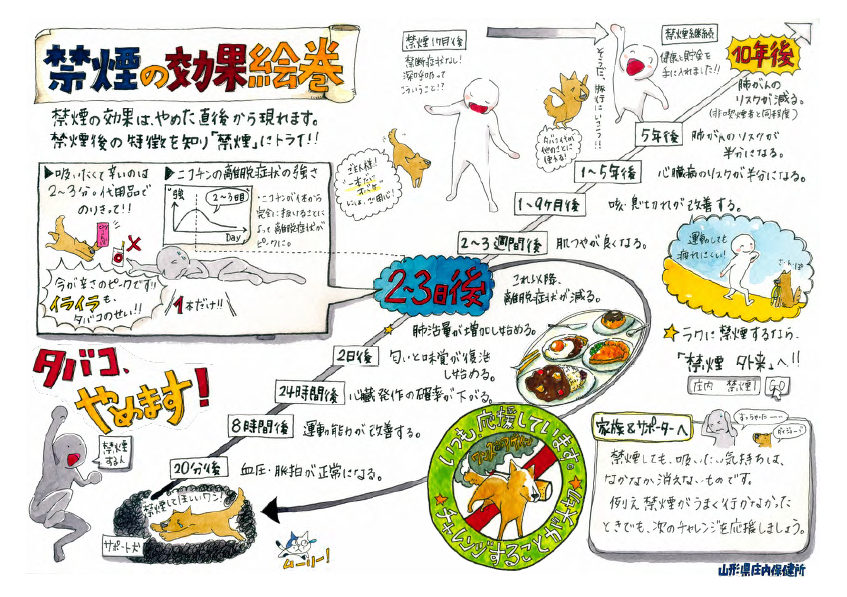 禁煙の効果絵巻
禁煙の効果は、やめた直後から現れます。
禁煙後の特徴を知り「禁煙」にトライ!!
▶吸いたくて辛いのは
2~3分。代用品で
のりきって!!
▶ニコチンの離脱症状の強さ
強
2~3日目
Day
・ニコチンが体から
完全に抜けることに
よって離脱症状が
ピークに。
今が辛さのピークです!!
イライラも、
タバコのせい!!
1本だけ!!
タバコ、
やめます!
禁煙
するん
サポート犬
禁煙してほしいワン!
ムーリー!
20分後
血圧・脈拍が正常になる。
8時間後
運動能力が改善する。
24時間後
心臓発作の確率が下がる。
2日後
匂いと味覚が復活
し始める。
2~3日後
肺活量が増加し始める。
これ以降、
離脱症状が減る。
2~3週間後
肌つやが良くなる。
1~9ヶ月後
咳・息切れが改善する。
1~5年後
心臓病のリスクが半分になる。
5年後
肺がんのリスクが
半分になる。
10年後
肺がんの
リスクが減る。
(非喫煙者と同程度)
禁煙1ヶ月後
禁断症状なし!
深呼吸って
こういうこと!?
そうだ、旅行にいこう!!
禁煙継続
健康と貯金を
手に入れました!!
タバコ代が
他のことに
使える!
運動しても
疲れにくい!
さんぽ
ラクに禁煙するなら、
「禁煙外来」へ!!
庄内 禁煙
いつも応援しています。
チャレンジすることが大切
家族&サポーターへ
禁煙しても、吸いたい気持ちは、
なかなか消えないものです。
例え禁煙がうまく行かなかった
ときでも、次のチャレンジを応援しましょう。
山形県庄内保健所